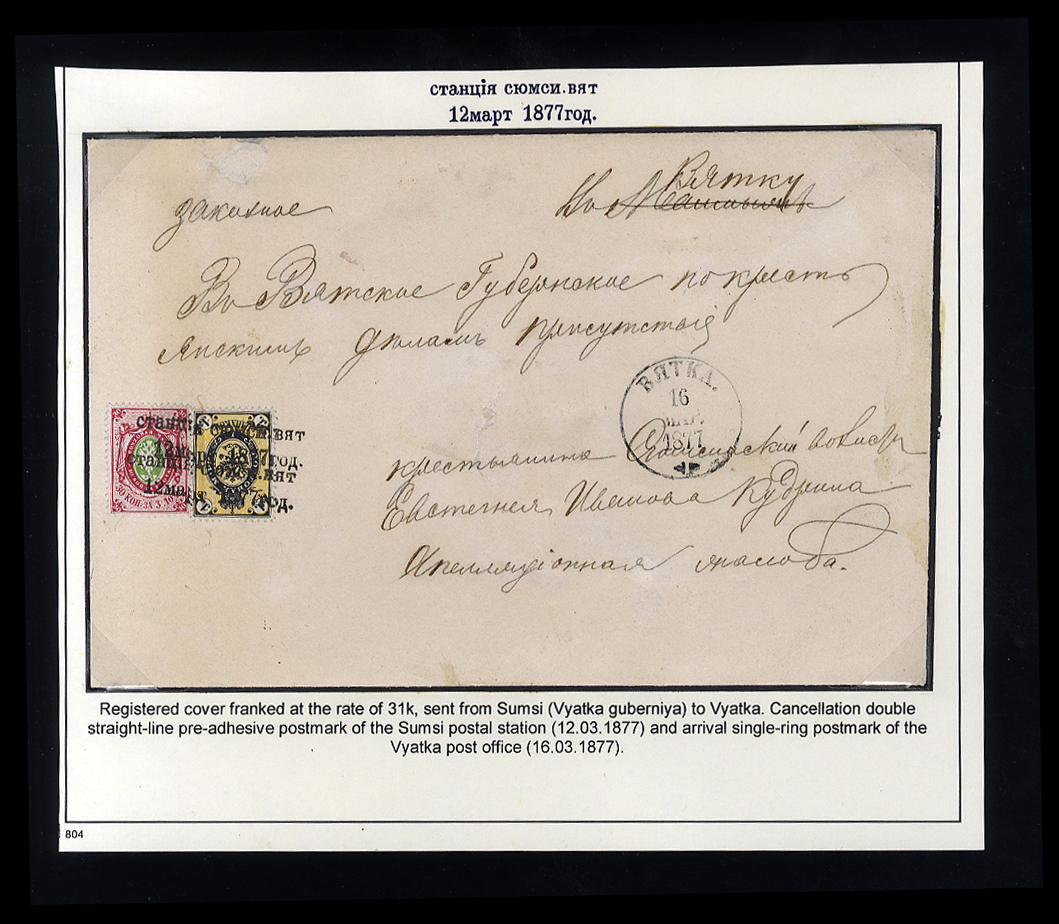 станція сюмси.вят
12март 1877год.
Вятку
заказное Во
Въ Вятское Губернское по кресть
янскимъ дѣламъ присутствіе
ВЯТКА.
16
МАР.
1877
станція сюмси.вят
12март 1877год.
станція сюмси.вят
12март 1877год.
30 КОП. ЗА 3. ЛО
крестьянина
Евстегнея Иванова Кудрина
Апелляціонная жалоба.
Registered cover franked at the rate of 31k, sent from Sumsi (Vyatka guberniya) to Vyatka. Cancellation double
straight-line pre-adhesive postmark of the Sumsi postal station (12.03.1877) and arrival single-ring postmark of the
Vyatka post office (16.03.1877).
804